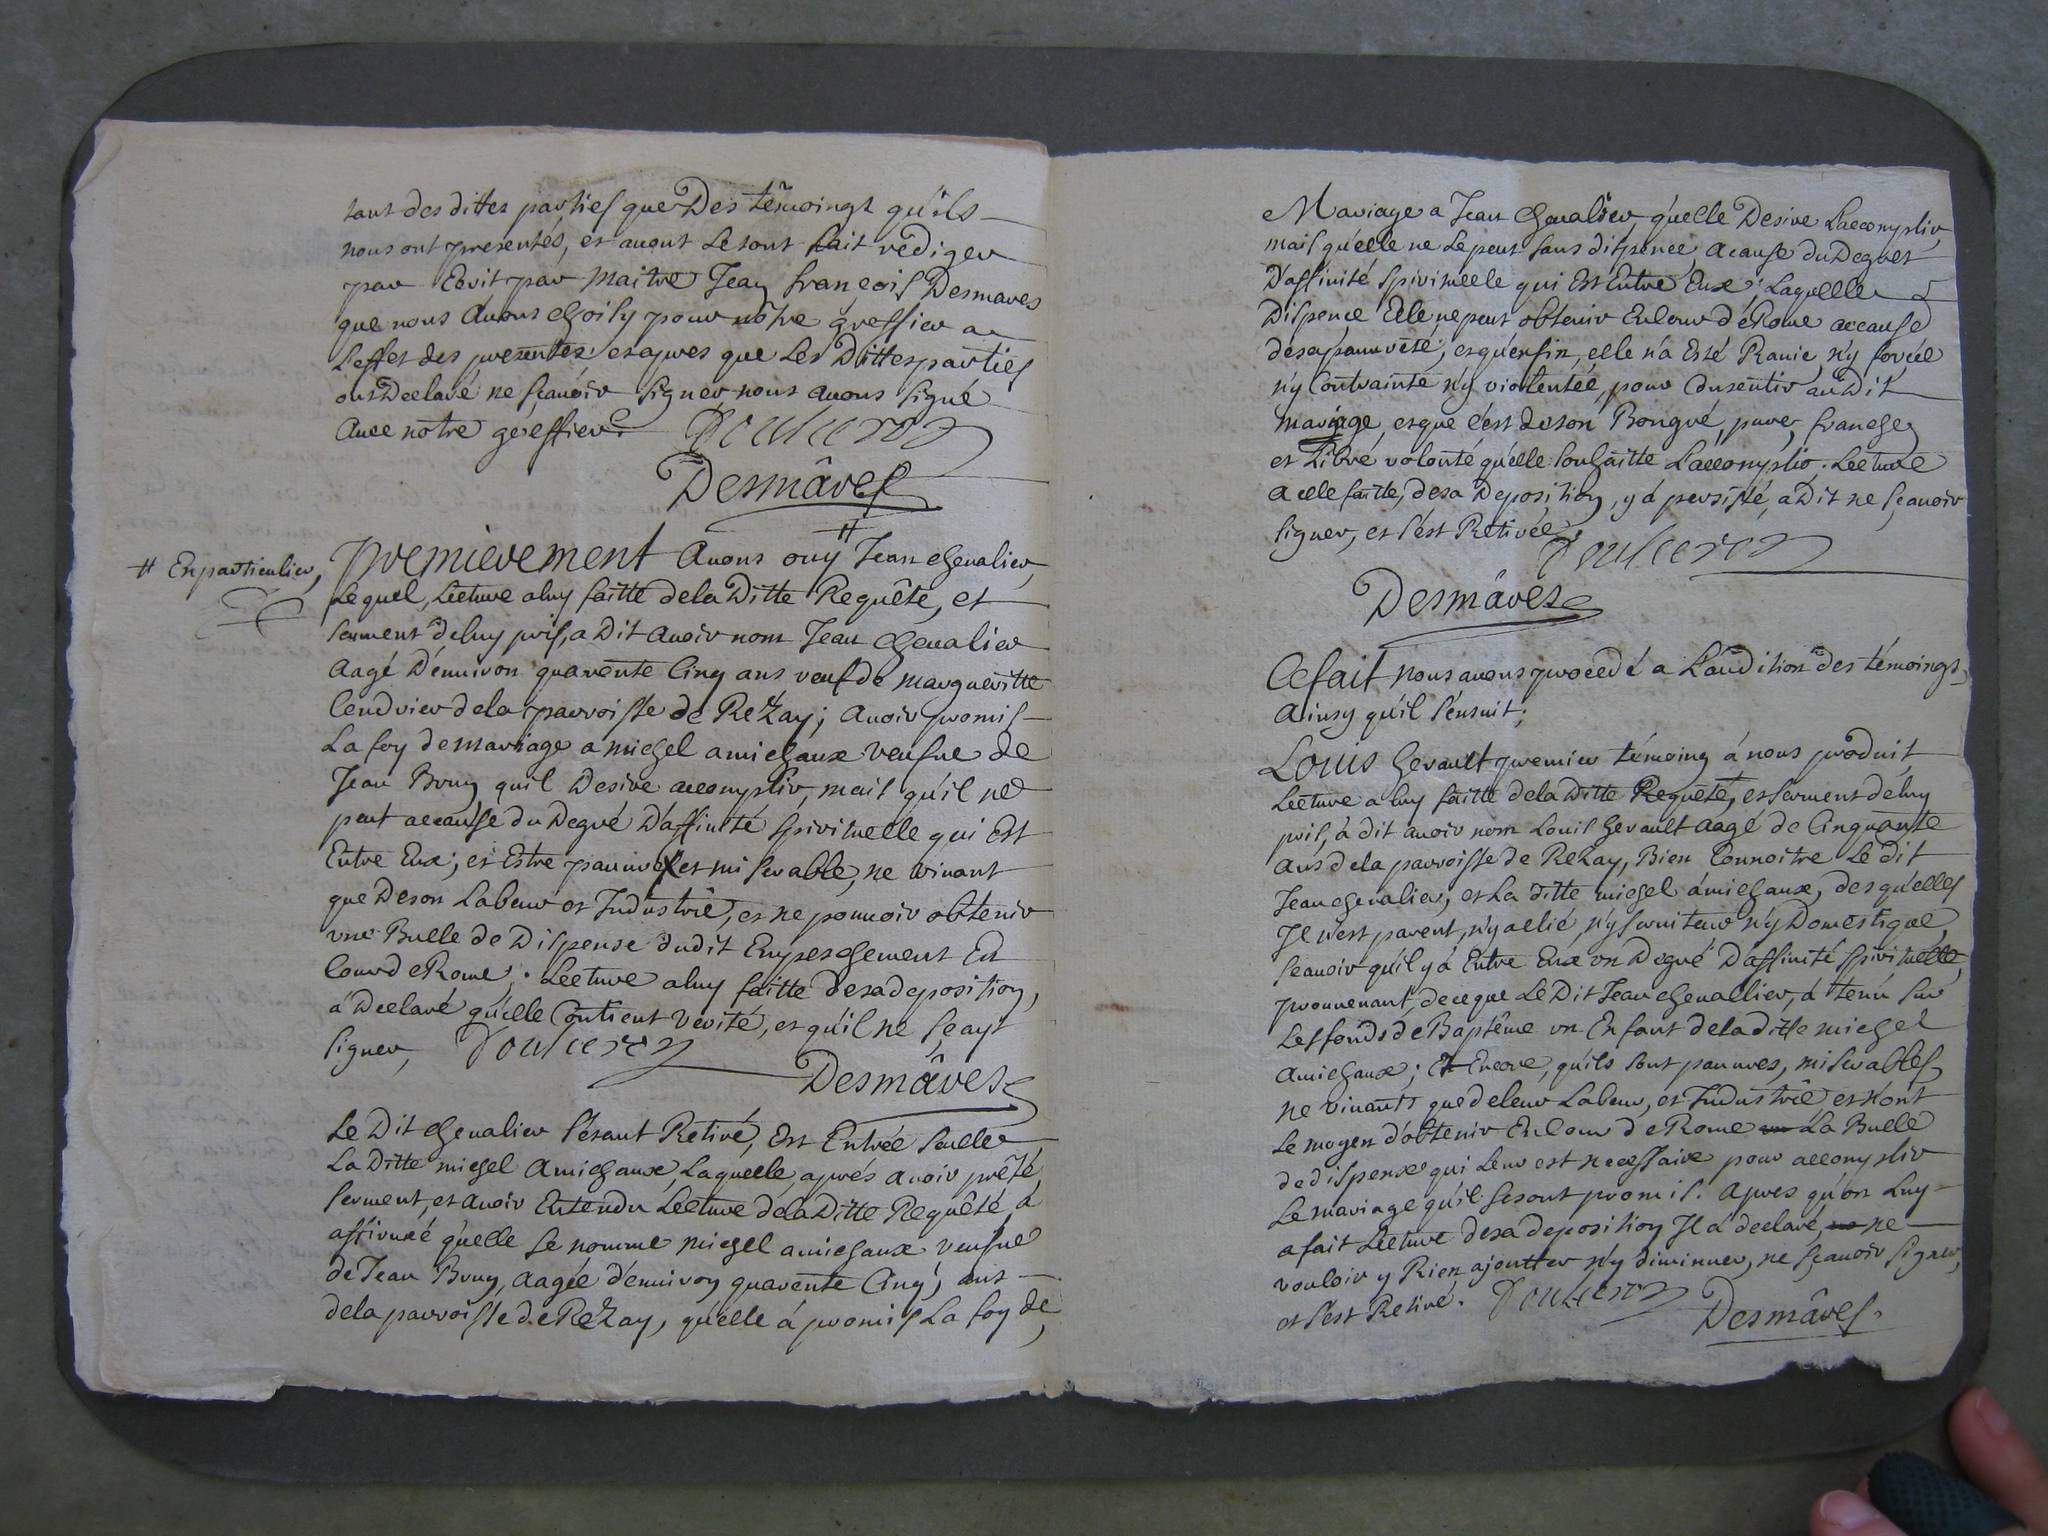 tant des dittes parties que Des têmoings qu'ils
nous ont presentés, et avons le tout fait rediger
par Ecrit par Maitre Jean françois Desmares
que nous Avons choisy pour nôtre greffier a
L'effet des presentes et apres que Les Dittes parties
ont Declaré ne sçavoir signer nous avons signé
Avec nôtre greffier.
Desmâres
# En particulier,
Premierement Avons ouy # Jean chevalier,
Lequel, Lecture a luy faitte de la Ditte Requête, et
serment de luy pris, a Dit avoir nom Jean chevalier
aagé D'environ quarente Cinq ans veuf de margueritte
Cendrier de la parroisse de Rezay; avoir promis
La foy de mariage a michel amichaux veufve de
Jean Brun qu'il Desire accomplir, mais qu'il ne
peut accause du Degré D'affinité spirituelle qui Est
Entre Eux; et Estre pauvre et miserable, ne vivant
que De son Labeur et Industrie, et ne pouvoir obtenir
une Bulle de Dispense dudit Empeschement En
Cour de Rome; Lecture a luy faitte de sa deposition,
á Declaré qu'elle Contient verité, et qu'il ne sçayt
signer,
Desmâres
Le Dit chevalier s'étant Retiré, Est Entrée seulle
La Ditte michel Amichaux, Laquelle, aprés avoir prêté
serment, et avoir Entendu Lecture de la Ditte Requêté a
affirméé qu'elle se nomme michel amichaux veufve
de Jean Brun, aagée d'environ quarente Cinq ans
de la parroisse de Rezay, qu'elle á promis La foy de
Mariage a Jean chevalier qu'elle Desire L'accomplir,
mais qu'elle ne Le peut sans dispence acause du Degret
D'affinité spirituelle qui Est Entre Eux; Laquelle
Dispence Elle ne peut obtenir En Cour de Rome accause
de sa pauvreté, et qu'enfin, elle n'a Esté Ravie, n'y forcée
n'y Contrainte n'y violentéé, pour Consentir audit
mariage, et que c'est de son Bon gré, pure, franche
et Libre volonté qu'elle souhaitte L'accomplir. Lecture
a elle faitte, de sa Deposition, y á persisté, a Dit ne sçavoir
signer, et s'est Retirée.
Desmâres
Ce fait nous avons procedé a L'audition des témoings
Ainsy qu'il s'ensuit;
Louis Gerault premier témoing á nous produit
Lecture a luy faitte de la Ditte Requête, et serment de luy
pris, á dit avoir nom Louis Gerault aagé de Cinquante
ans de la parroisse de Rezay, Bien Connoitre Le dit
Jean chevalier, et La ditte michel ámichaux, desquelles
Il n'est parent, n'y allié, n'y serviteur n'y Domestique,
sçavoir qu'il y á Entre Eux un Degré D'affinité spirituelle,
prouvenant, de ce que Le Dit Jean chevallier, á tenú sur
Les fonds de Baptême un Enfant de la ditte michel
Amichaux; Et Encore, qu'ils sont pauvres, miserables
ne vivants que de leur Labeur, et Industrie et N'ont
Le moyen d'obtenir En Cour de Rome La Bulle
de dispense qui Leur est necessaire pour accomplir
Le mariage qu'il se sont promis. Apres qu'on Luy
a fait Lecture de sa deposition Il á declaré, ne
vouloir y Rien ajoutter n'y diminuer, ne sçavoir signer,
et s'est Retiré.
Desmâres.